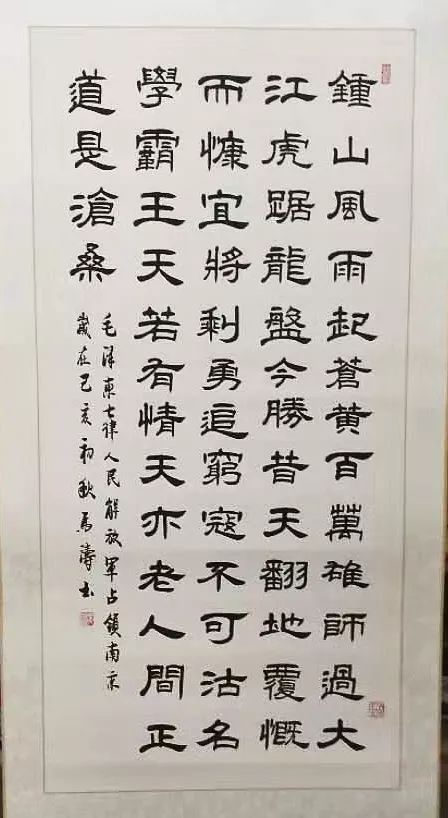 鍾山風雨起蒼黃百萬雄師過大
江虎踞龍盤今勝昔天翻地覆慨
而慷宜將剩勇追窮寇不可沽名
學霸王天若有情天亦老人間正
道是滄桑
毛澤東七律人民解放軍占領南京
歲在己亥初秋馬濤书